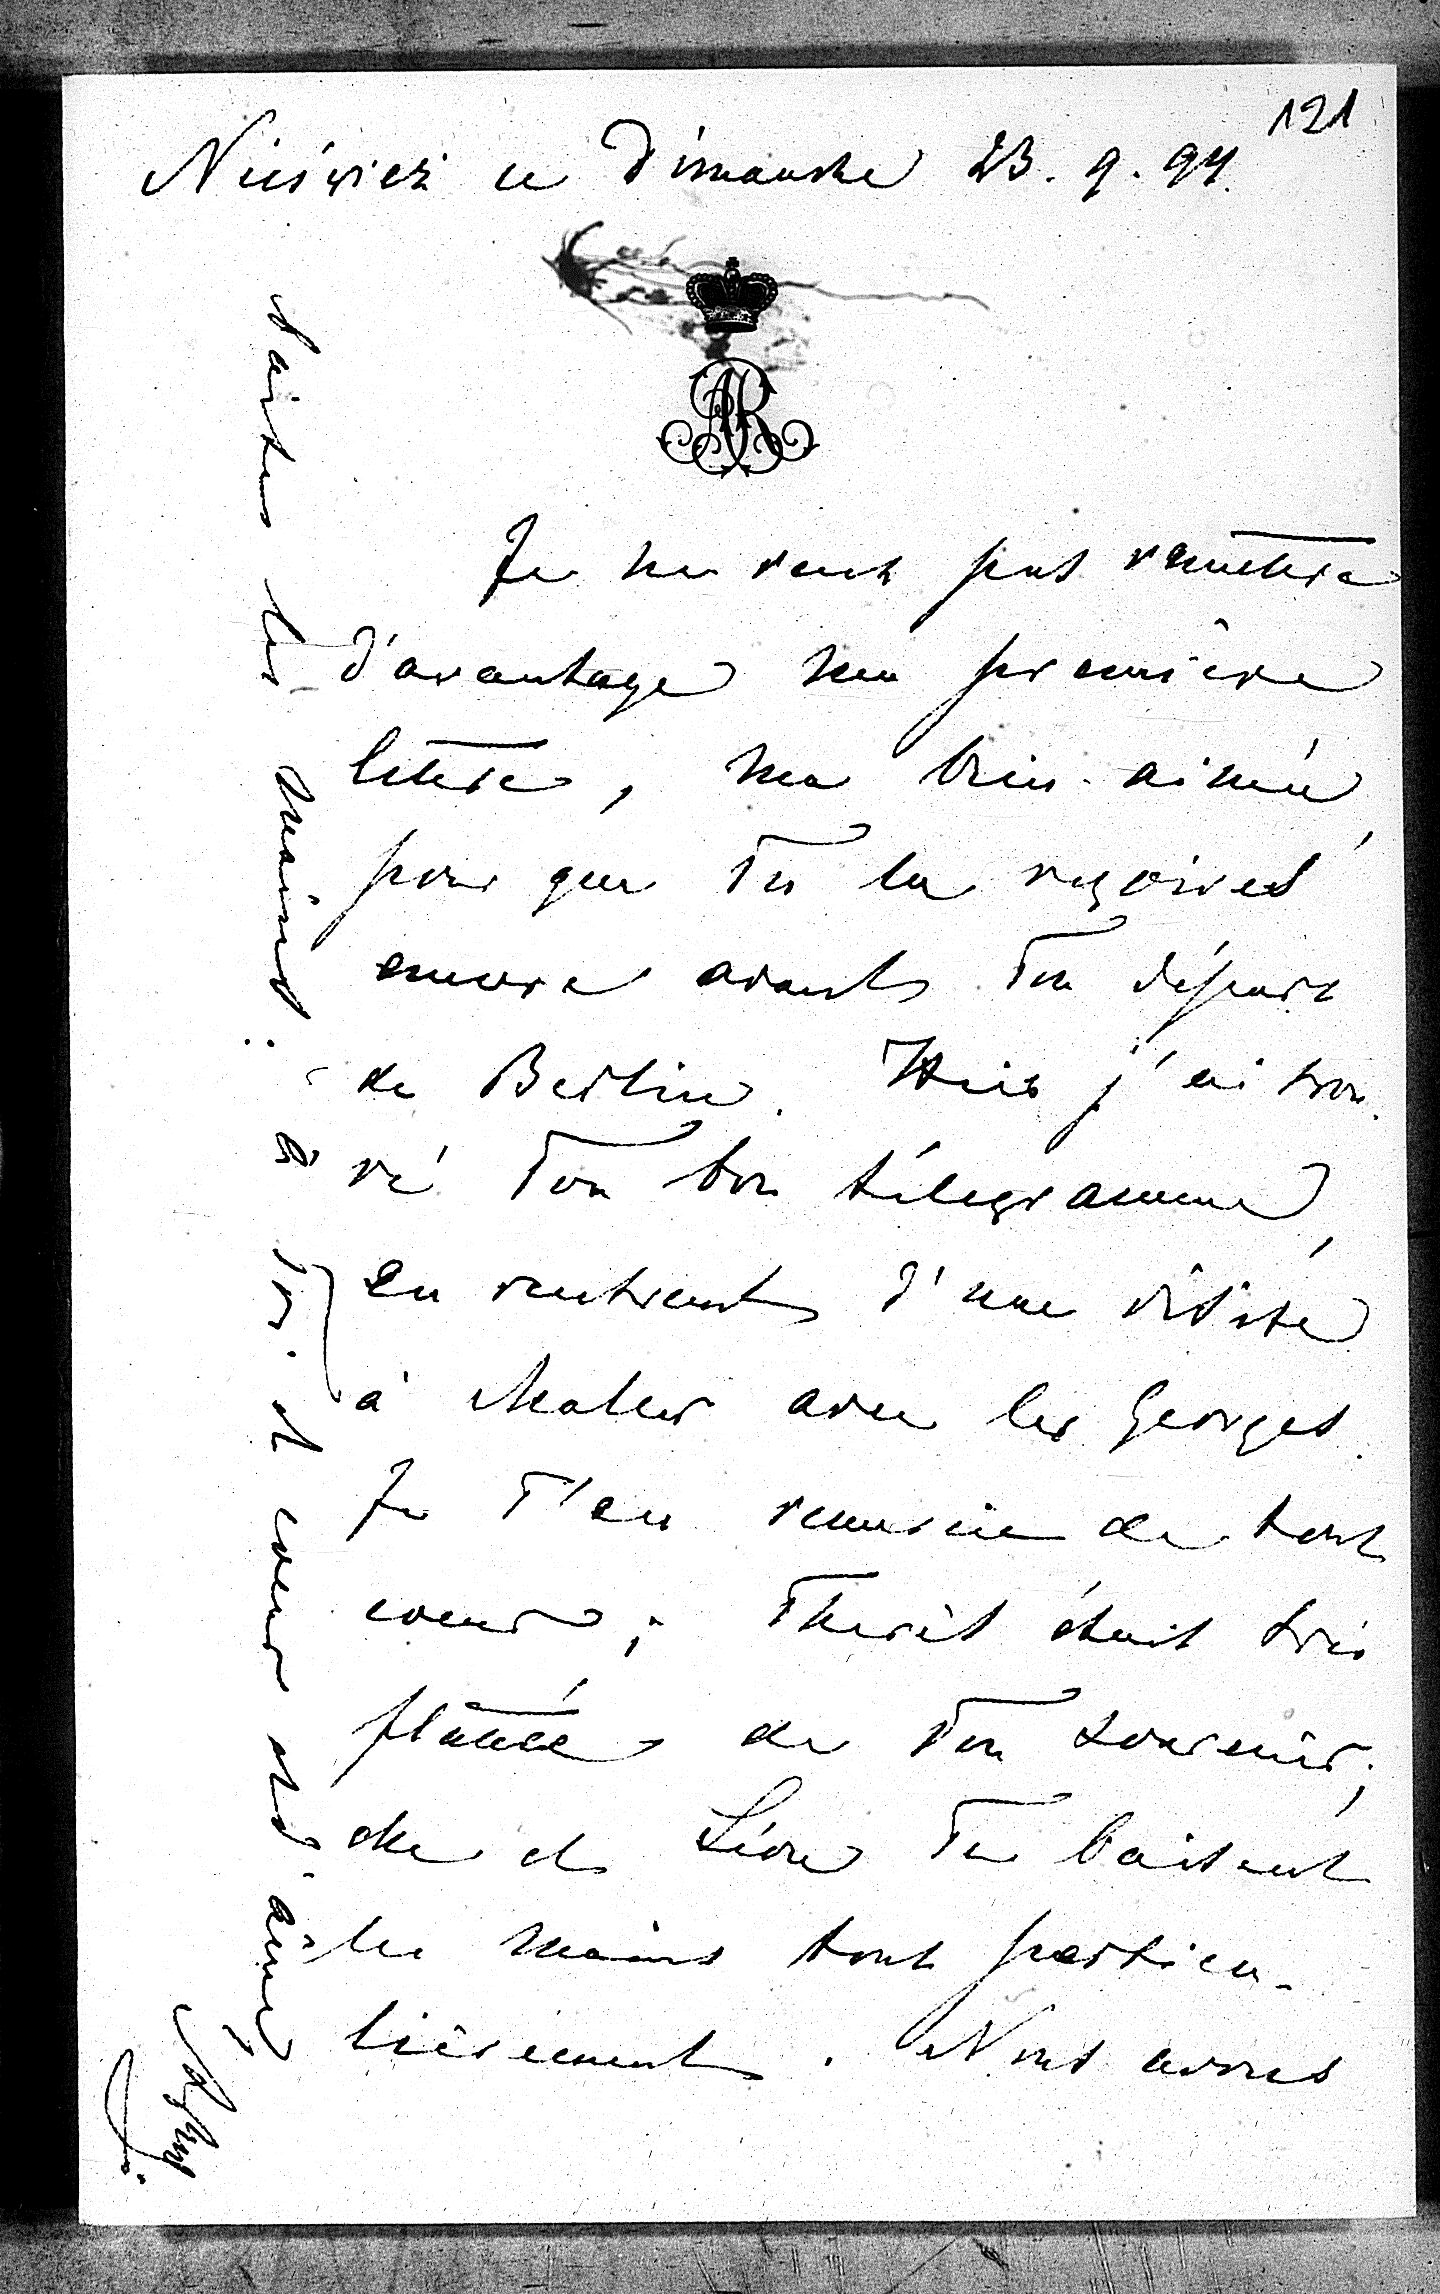 121
Nieśwież ce Dimanche 23. 9. 94.
AR
Je ne veux pas remettre
d'avantage ma première
lettre, ma bien-aimée,
pour que Tu la reçoives
encore avant Ton départ
de Berlin. Hier j'ai trou-
vé Ton bon télégramme,
en rentrant d'une visite
à Malew avec les Georges.
Je T'en remercie de tout
coeur; Therès était très
flattée de Ton souvenir;
elle et Léon Te baisent
les mains tout particu-
lièrement. Nous avons
toutes les mains. - à Toi de coeur et d'âme